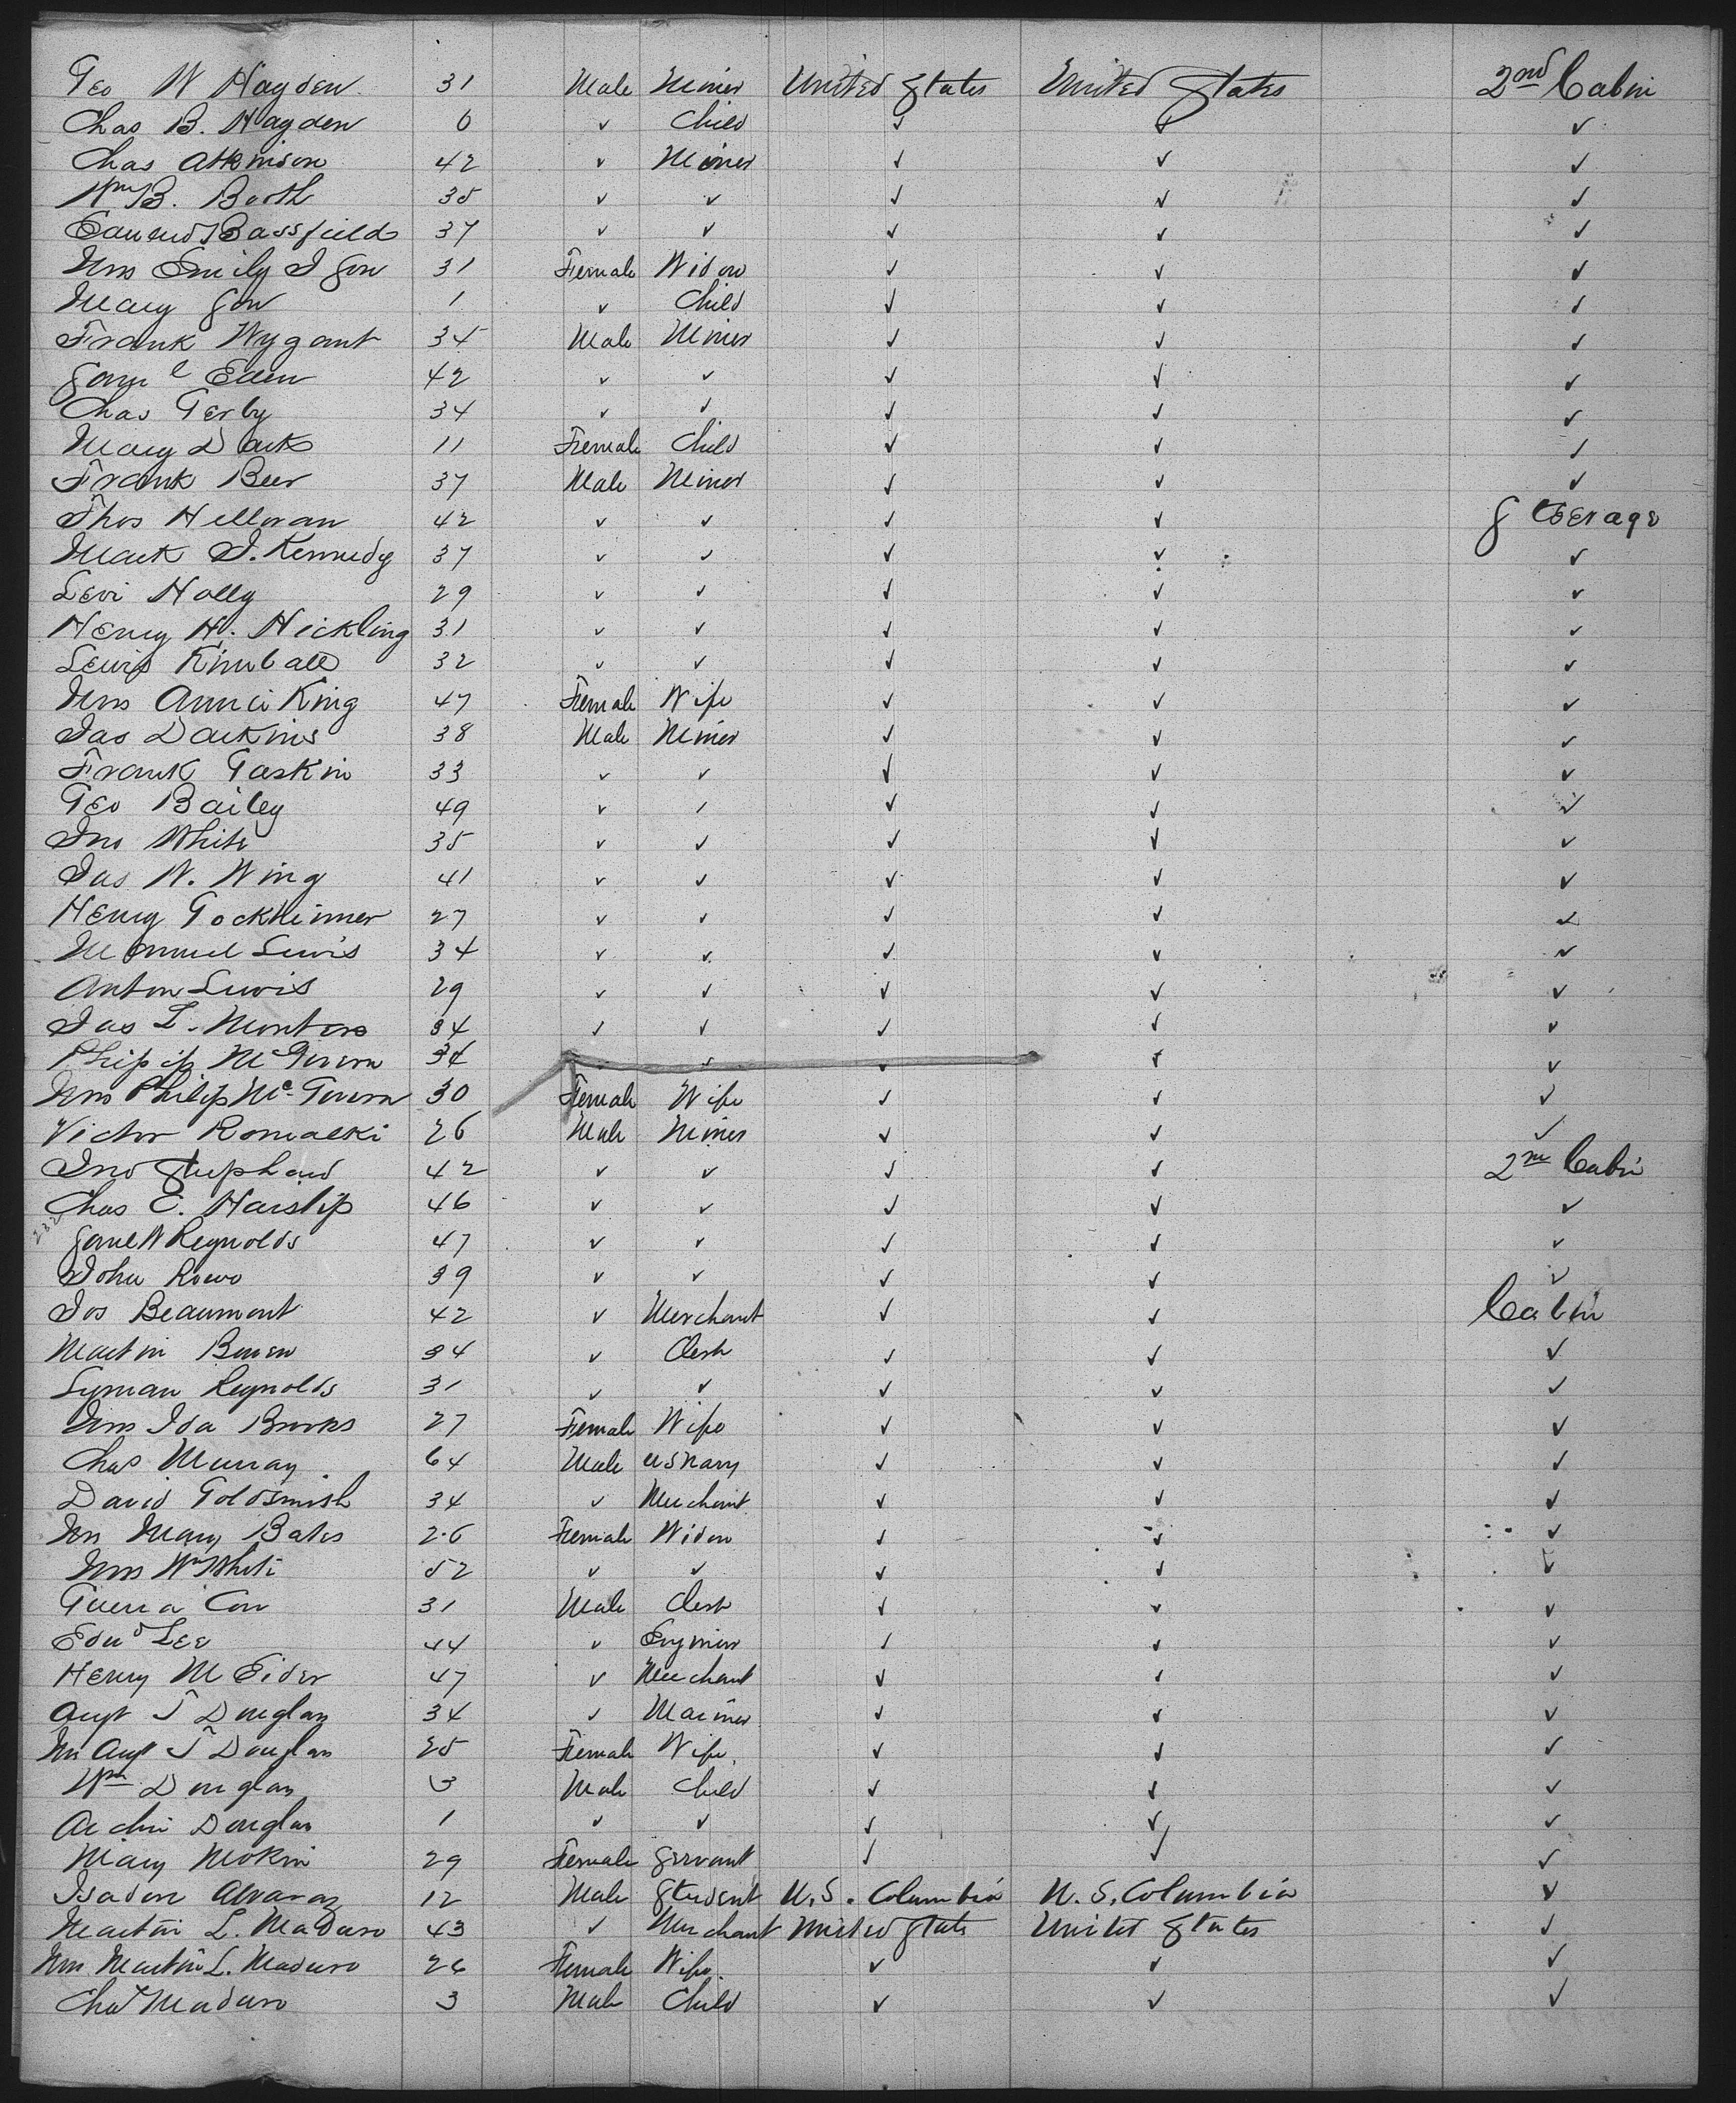 Geo W Hayden 31 Male Miner United States United States 2nd Cabin
Chas B. Hayden 6 ✓ Child ✓ ✓ ✓
Chas Atkinson 42 ✓ Miner ✓ ✓ ✓
Wm B. Booth 35 ✓ ✓ ✓ ✓ ✓
Bassfield 37 ✓ ✓ ✓ ✓ ✓
Mrs Emily J 31 Female Widow ✓ ✓ ✓
Mary 1 ✓ Child ✓ ✓ ✓
Frank Wygant 34 Male Miner ✓ ✓ ✓
Saml Eden 42 ✓ ✓ ✓ ✓ ✓
Chas Gerby 34 ✓ ✓ ✓ ✓ ✓
Mary Dark 11 Female Child ✓ ✓ ✓
Frank Beer 37 Male Miner ✓ ✓ ✓
Thos Helloran 42 ✓ ✓ ✓ ✓ Steerage
Mark J. Kennedy 37 ✓ ✓ ✓ ✓ ✓
Levi Holly 29 ✓ ✓ ✓ ✓ ✓
Henry H. Hickling 31 ✓ ✓ ✓ ✓ ✓
Lewis Kimball 32 ✓ ✓ ✓ ✓ ✓
Mrs Annie King 47 Female Wife ✓ ✓ ✓
Jas Darkins 38 Male Miner ✓ ✓ ✓
Frank Gaskin 33 ✓ ✓ ✓ ✓ ✓
Geo Bailey 49 ✓ ✓ ✓ ✓ ✓
Jno White 35 ✓ ✓ ✓ ✓ ✓
Jas W. Wing 41 ✓ ✓ ✓ ✓ ✓
Henry Gockheimer 27 ✓ ✓ ✓ ✓ ✓
Manuel Lewis 34 ✓ ✓ ✓ ✓ ✓
Anton Lewis 29 ✓ ✓ ✓ ✓ ✓
Jas L. 34 ✓ ✓ ✓ ✓ ✓
Philip McGovern 34 ✓ ✓ ✓ ✓
Mrs Philip McGovern 30 Female Wife ✓ ✓ ✓
Victor Romalski 26 Male Miner ✓ ✓ ✓
Jno Shephard 42 ✓ ✓ ✓ ✓ 2nd Cabin
Chas E. Haislip 46 ✓ ✓ ✓ ✓ ✓
Saml W Reynolds 47 ✓ ✓ ✓ ✓ ✓
John Rowe 39 ✓ ✓ ✓ ✓ ✓
Jos Beaumont 42 ✓ Merchant ✓ ✓ Cabin
Martin Bowen 34 ✓ Clerk ✓ ✓ ✓
Lyman Reynolds 31 ✓ ✓ ✓ ✓ ✓
Mrs Ida Brooks 27 Female Wife ✓ ✓ ✓
Chas Murray 64 Male US Navy ✓ ✓ ✓
David Goldsmith 34 ✓ Merchant ✓ ✓ ✓
Mrs Mary Bates 26 Female Widow ✓ ✓ ✓
Mrs Wm White 52 ✓ ✓ ✓ ✓ ✓
31 Male Clerk ✓ ✓ ✓
Edwd Lee 44 ✓ Engineer ✓ ✓ ✓
Henry M Eider 47 ✓ Merchant ✓ ✓ ✓
Augt T Douglas 34 ✓ Mariner ✓ ✓ ✓
Mrs Augt T Douglas 25 Female Wife. ✓ ✓ ✓
Wm Douglas 3 Male Child ✓ ✓ ✓
Archie Douglas 1 ✓ ✓ ✓ ✓ ✓
Mary 29 Female Servant ✓ ✓ ✓
Isadore Alvarez 12 Male Student U.S. Columbia U.S. Columbia ✓
Martin L. Maduro 43 ✓ Merchant United States United States ✓
Mrs Martin L. Maduro 26 Female Wife. ✓ ✓ ✓
Chas Maduro 3 Male Child ✓ ✓ ✓